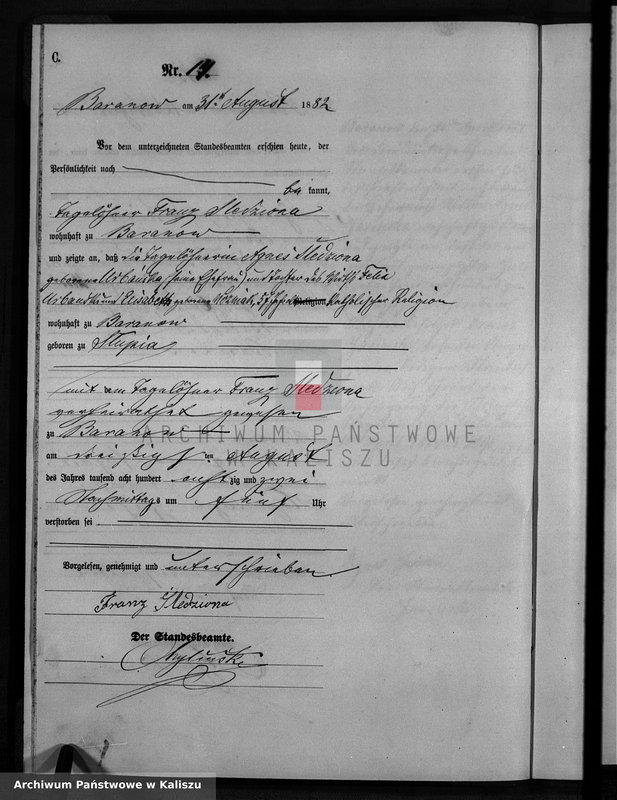 C.
Nr. 19.
Baranow am 31ten August 1882
Vor dem unterzeichneten Standesbeamten erschien heute, der
Persönlichkeit nach
be kannt,
Tagelöhner Franz Śledziona
wohnhaft zu Baranow
und zeigte an, daß die Tagelöhnerin Agnes Śledziona
geborene Urbańska, seine Ehefrau, und Tochter des Wirths Felix
Urbański und Elisabeth geborene 57 Jahre Religion katholischer Religion
wohnhaft zu Baranow
geboren zu Słupia
mit dem Tagelöhner Franz Śledziona
verheirathet gewesen
ARCHIWUM PAŃSTWOWE
W KALISZU
zu Baranow
am dreißigsten August
des Jahres tausend acht hundert achtzig und zwei
Nachmittags um fünf Uhr
verstorben sei
Vorgelesen, genehmigt und unterschrieben
Franz Śledziona
Der Standesbeamte.
Archiwum Państwowe w Kaliszu